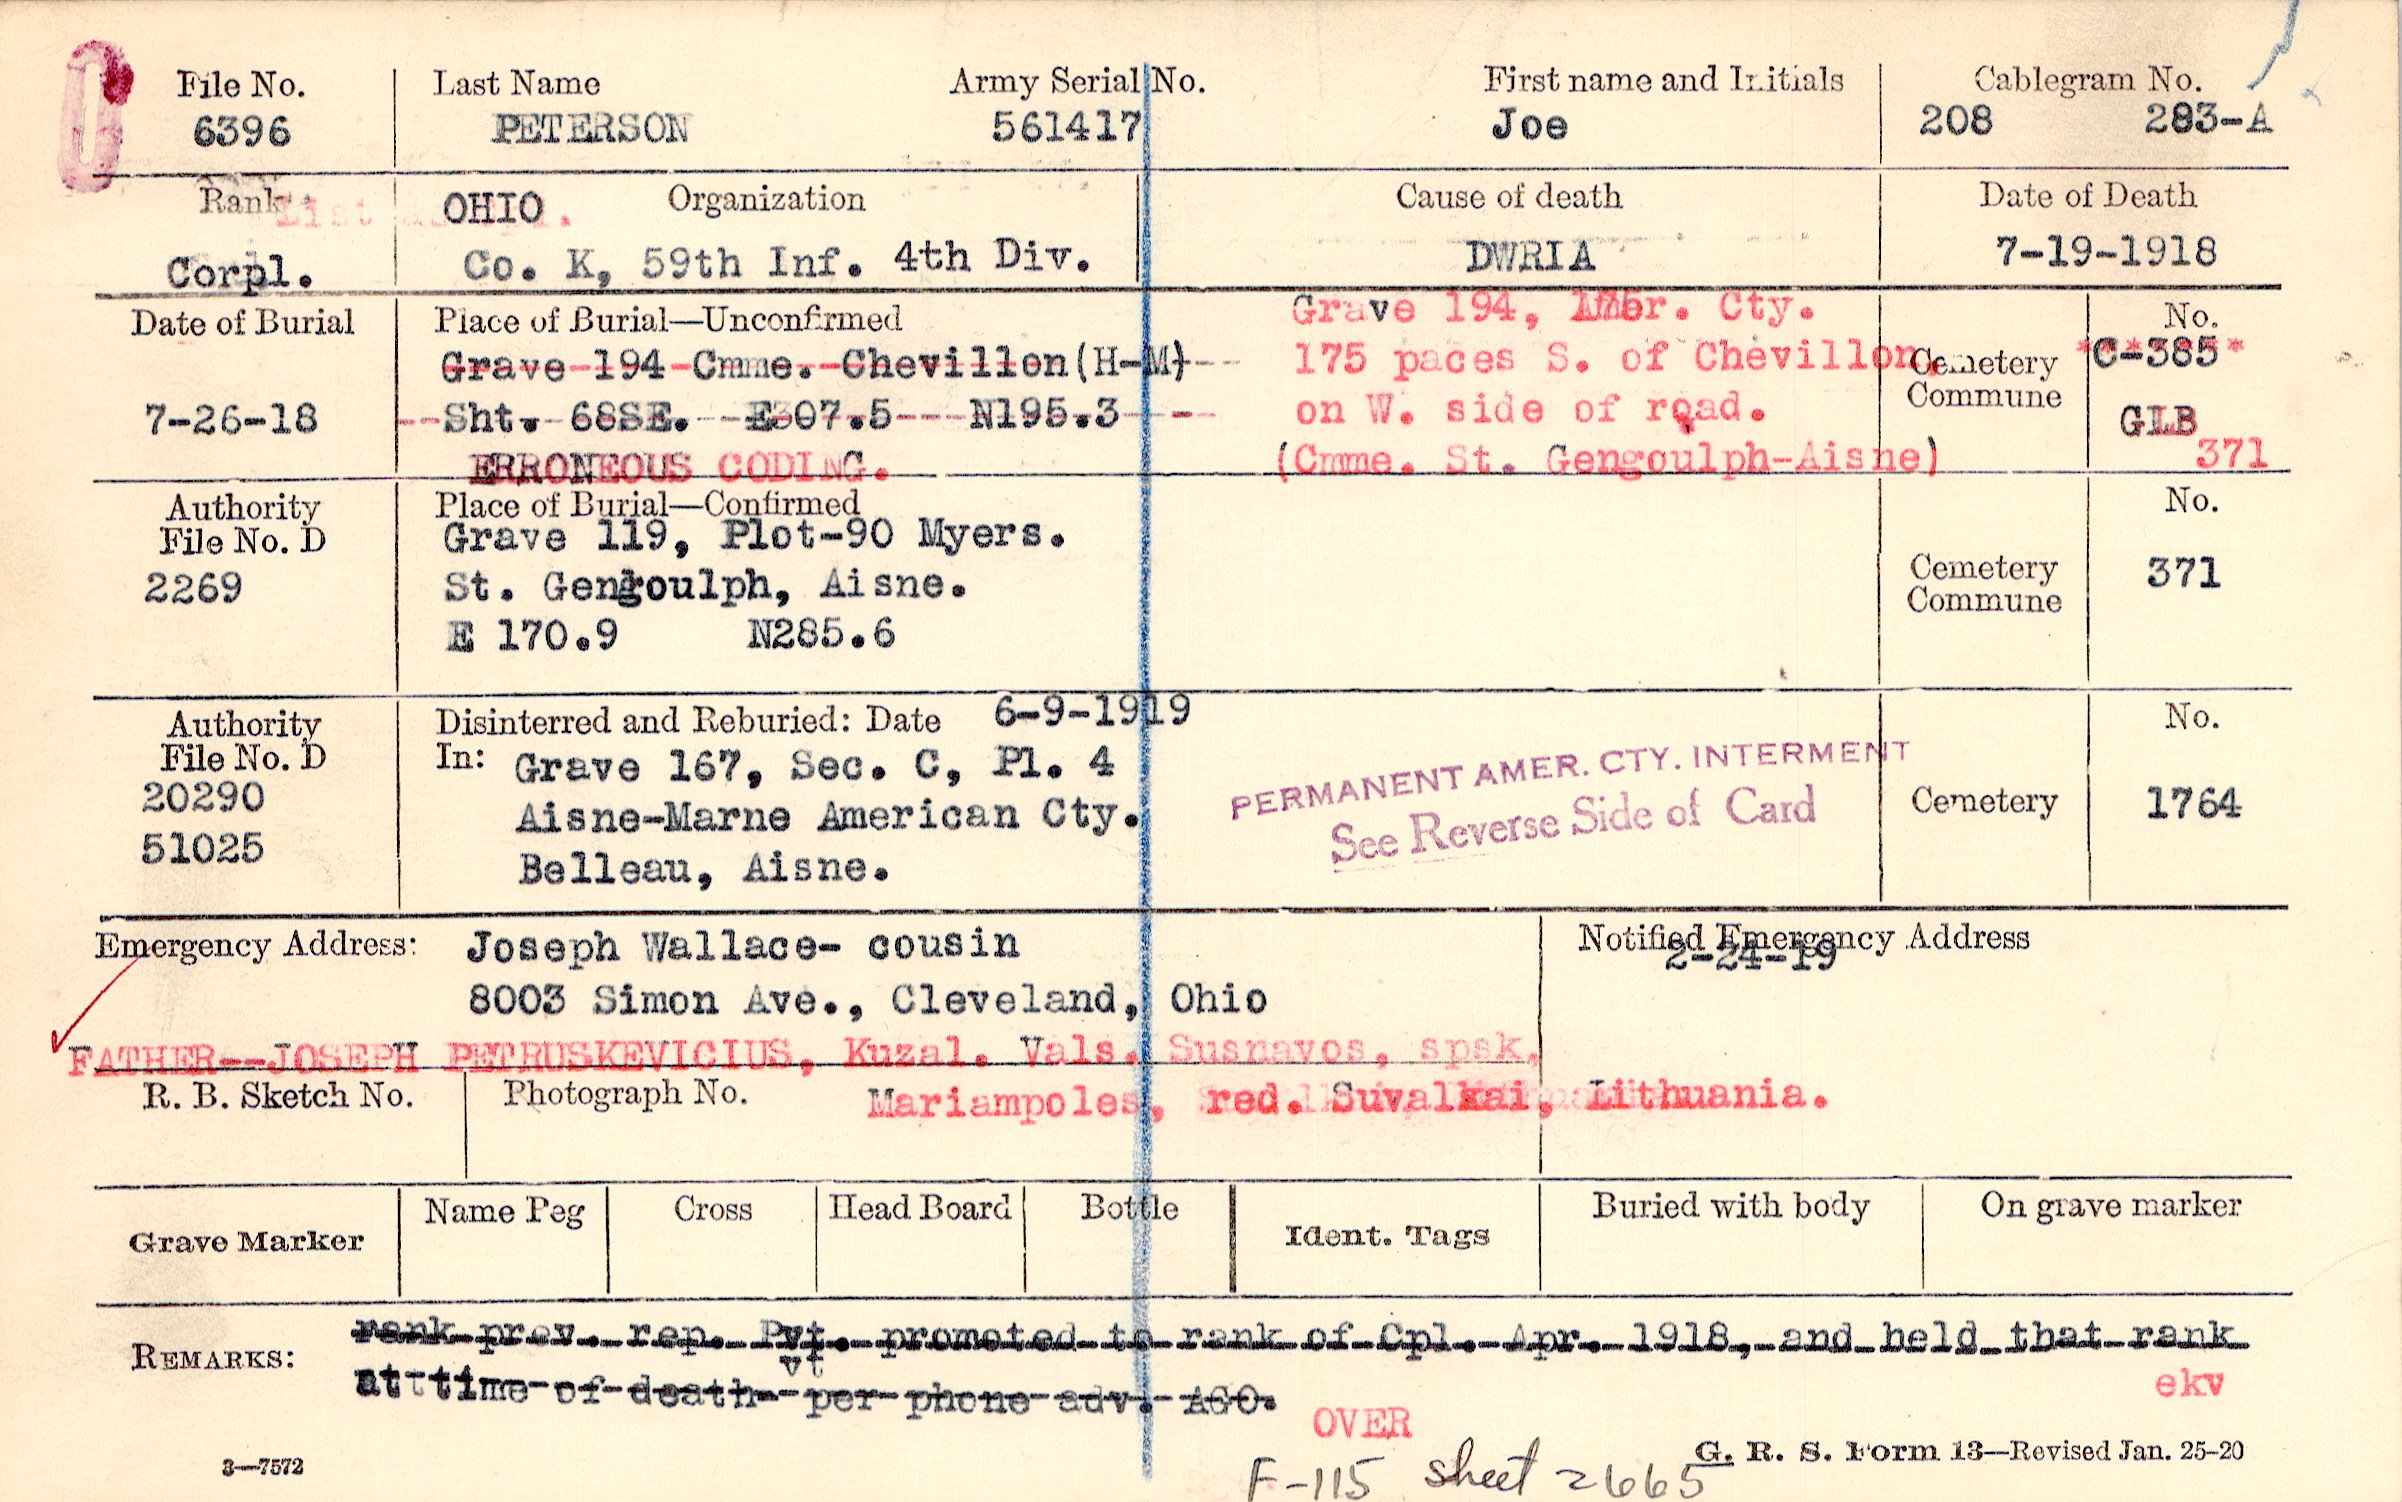 File No.
6396
Last Name
PETERSON
Army Serial No.
561417
First name and Initials
Joe
Cablegram No.
208 283-A
Rank
Corpl.
OHIO Organization
Co. K, 59th Inf. 4th Div.
Cause of death
DWRIA
Date of Death
7-19-1918
Date of Burial
7-26-18
Place of Burial—Unconfirmed
Grave 194 Cmme. Chevillon (H-M)
Sht. 68SE. E307.5 N195.3
ERRONEOUS CODING.
Grave 194, Amer. Cty.
175 paces S. of Chevillon,
on W. side of road.
(Cmme. St. Gengoulph-Aisne)
Cemetery
Commune
No.
C-385
GLB
371
Authority
File No. D
2269
Place of Burial—Confirmed
Grave 119, Plot-90 Myers.
St. Gengoulph, Aisne.
E 170.9 N285.6
Cemetery
Commune
No.
371
Authority
File No. D
20290
51025
Disinterred and Reburied: Date 6-9-1919
In: Grave 167, Sec. C, Pl. 4
Aisne-Marne American Cty.
Belleau, Aisne.
PERMANENT AMER. CTY. INTERMENT
See Reverse Side of Card
Cemetery
No.
1764
Emergency Address: Joseph Wallace- cousin
8003 Simon Ave., Cleveland, Ohio
Notified Emergency Address
2-24-19
FATHER--JOSEPH PETRUSKEVICIUS, Kuzal. Vals. Susnavos, spsk,
Mariampoles, red. Suvalkai, Lithuania.
R. B. Sketch No.
Photograph No.
Grave Marker
Name Peg
Cross
Head Board
Bottle
Ident. Tags
Buried with body
On grave marker
REMARKS: rank prev. rep. Pvt. promoted to rank of Cpl. Apr. 1918, and held that rank
at time of death per phone adv. AGO.
ekv
OVER
3—7572
F-115 sheet 2665
G. R. S. Form 13—Revised Jan. 25-20